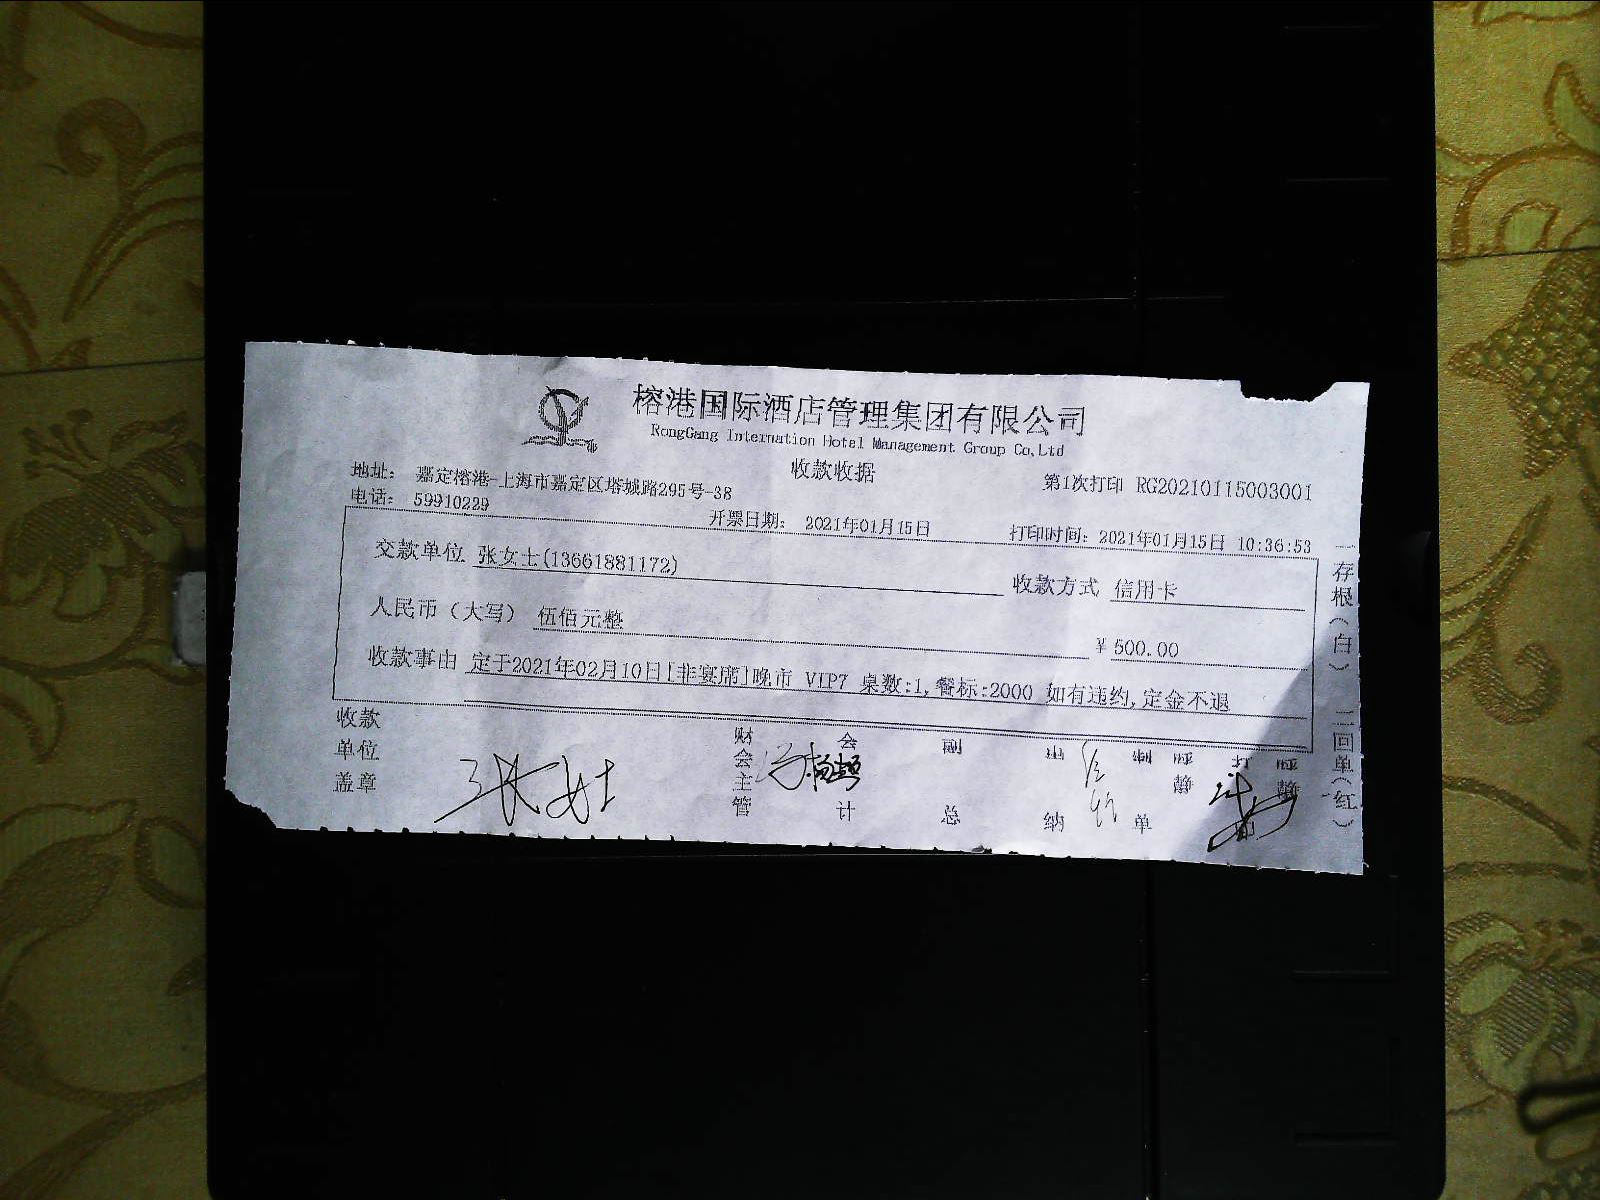 榕港国际酒店管理集团有限公司
RongGang Internation Hotal Management Group Co,Ltd
收款收据
地址： 嘉定榕港-上海市嘉定区塔城路295号-38
第1次打印 RG20210115003001
电话： 59910229
开票日期： 2021年01月15日
打印时间：2021年01月15日 10:36:53
交款单位 张女士(13661881172)
收款方式 信用卡
人民币（大写） 伍佰元整
￥500.00
收款事由 定于2021年02月10日[非宴席]晚市 VIP7 桌数:1,餐标:2000 如有违约,定金不退
收款单位盖章
张女士
财会主管
会计
纳
单
一存根（白） 二回单（红）